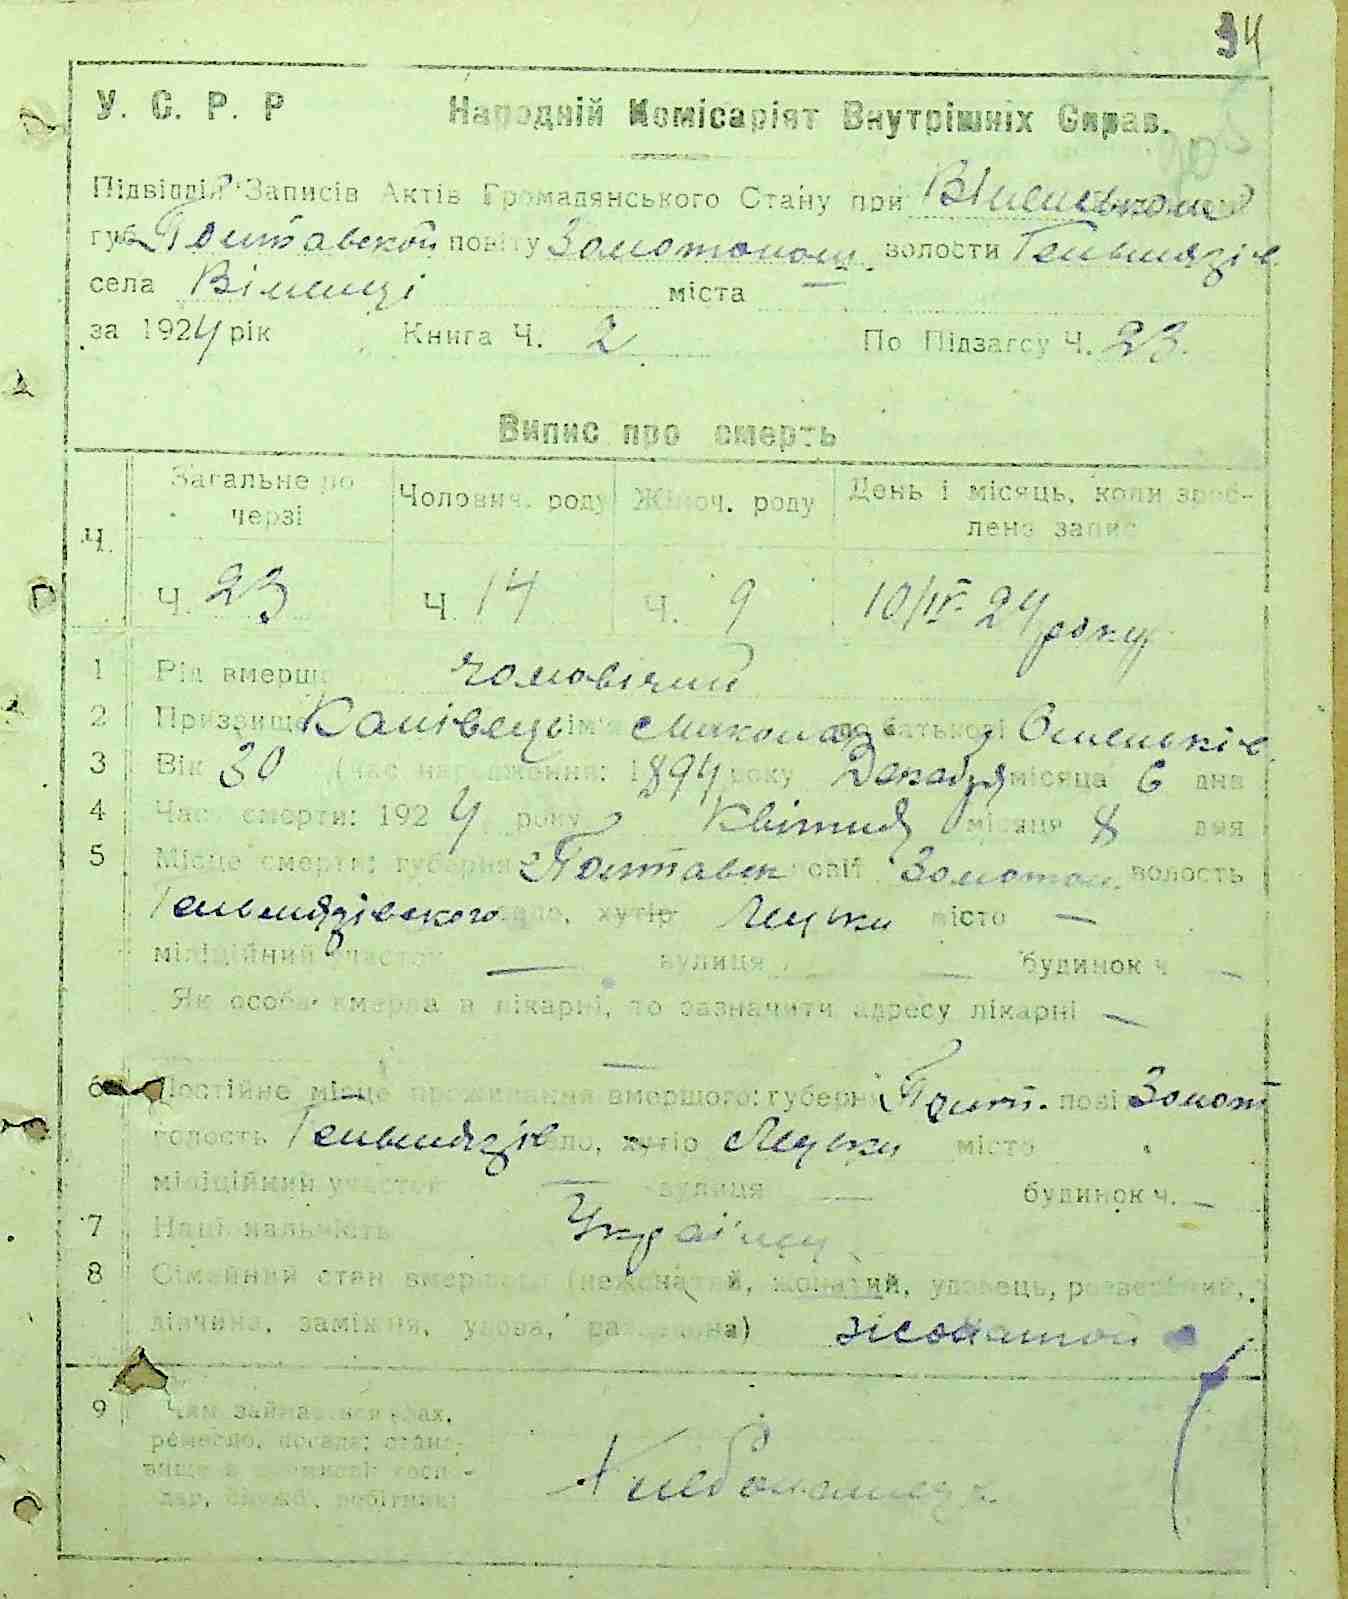 34
У. С. Р. Р Народній Комісаріят Внутрішніх Справ.
Підвідділ Записів Актів Громадянського Стану при
губ. Полтавской повіту Золотонош. волости Гельмязів.
села міста —
за 1924 рік Книга Ч. 2 По Підзагсу Ч. 23.
Випис про смерть
Ч. Загальне по черзі Чоловіч. роду Жіноч. роду День і місяць, коли зроб-
лено запис
Ч. 23 Ч. 14 Ч. 9 10/IV 24 року
1 Рід вмершо чоловічий
2 Призвище Канівець ім'я Микола по батькові Олешків
3 Вік 30 (час народження: 1894 року Декабря місяця 6 дня
4 Час смерти: 1924 року Квітня місяця 8 дня
5 Місце смерти: губерня Полтавск повіт Золотон. волость
Гельмязівского село, хутір місто —
міліційний участок — вулиця — будинок ч —
Як особа вмерла в лікарні, то зазначити адресу лікарні —
—
6 Постійне місце проживання вмершого: губерні Полт. пові Золот
волость Гельмязів село, хутір місто
міліційний участок — вулиця — будинок ч. —
7 Національність Українец
8 Сімейний стан вмершого (нежонатий, жонатий, удовець, розведений,
дівчина, заміжня, удова, разведена) жонатой
9 Чим займався (фах,
ремесло, посада; стано-
вище в промислі: госпо-
дар, служб, робітник) Хлебопашец